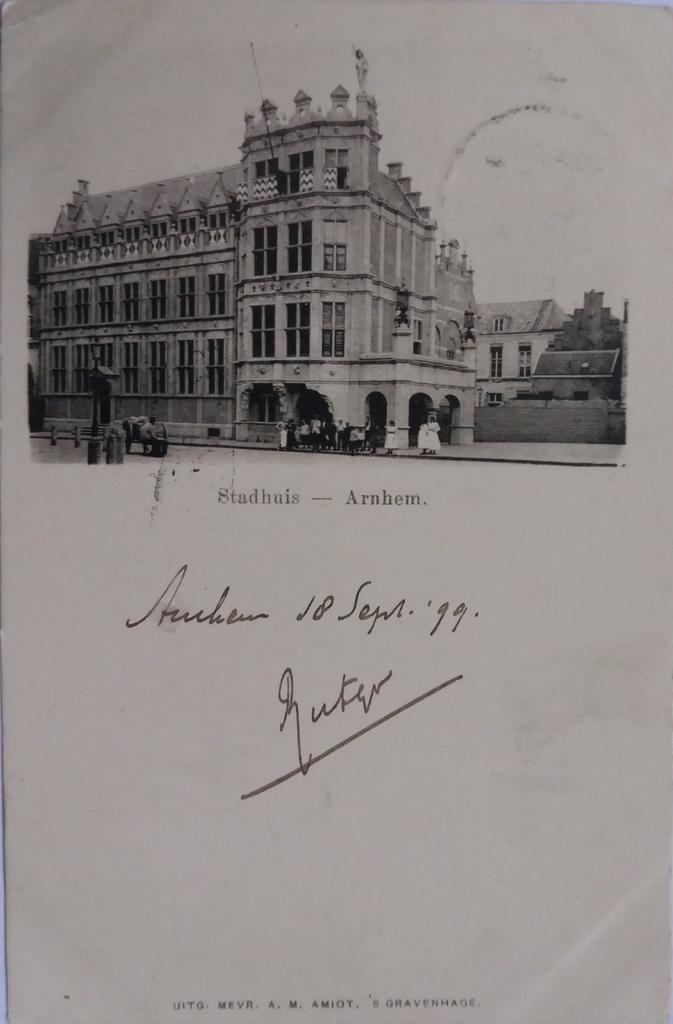 Stadhuis — Arnhem.
Arnhem 18 Sept. '99.
Rutger
UITG. MEVR. A. M. AMIOT, 'S GRAVENHAGE.